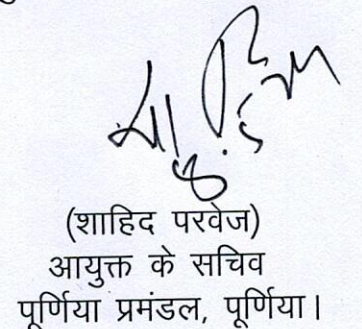 (शाहिद परवेज)
आयुक्त के सचिव
पूर्णिया प्रमंडल, पूर्णिया।